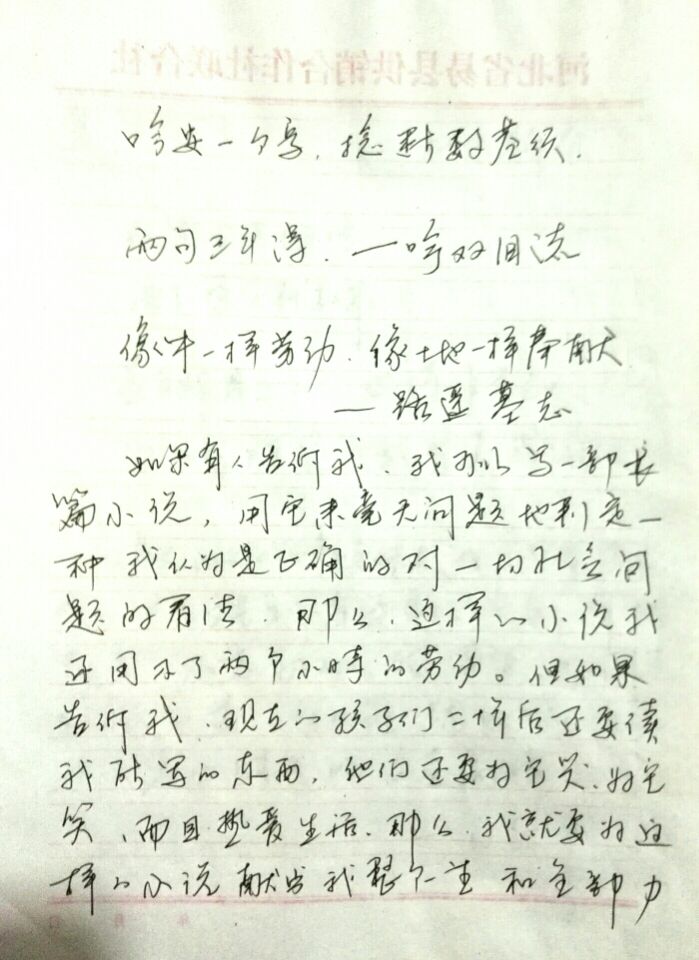 河北省易县供销合作社联合社
吟安一个字，捻断数茎须．
两句三年得．一吟双泪流
像牛一样劳动．像土地一样奉献
—路遥墓志
如果有人告诉我．我可以写一部长
篇小说，用它来毫无问题地判定一
种我认为是正确的对一切社会问
题的看法．那么．这样的小说我
还用不了两个小时的劳动。但如果
告诉我．现在的孩子们二十年后还要读
我所写的东西，他们还要为它哭．为它
笑、而且热爱生活．那么．我就要为这
样的小说献出我整个一生和全部力
年 月 日